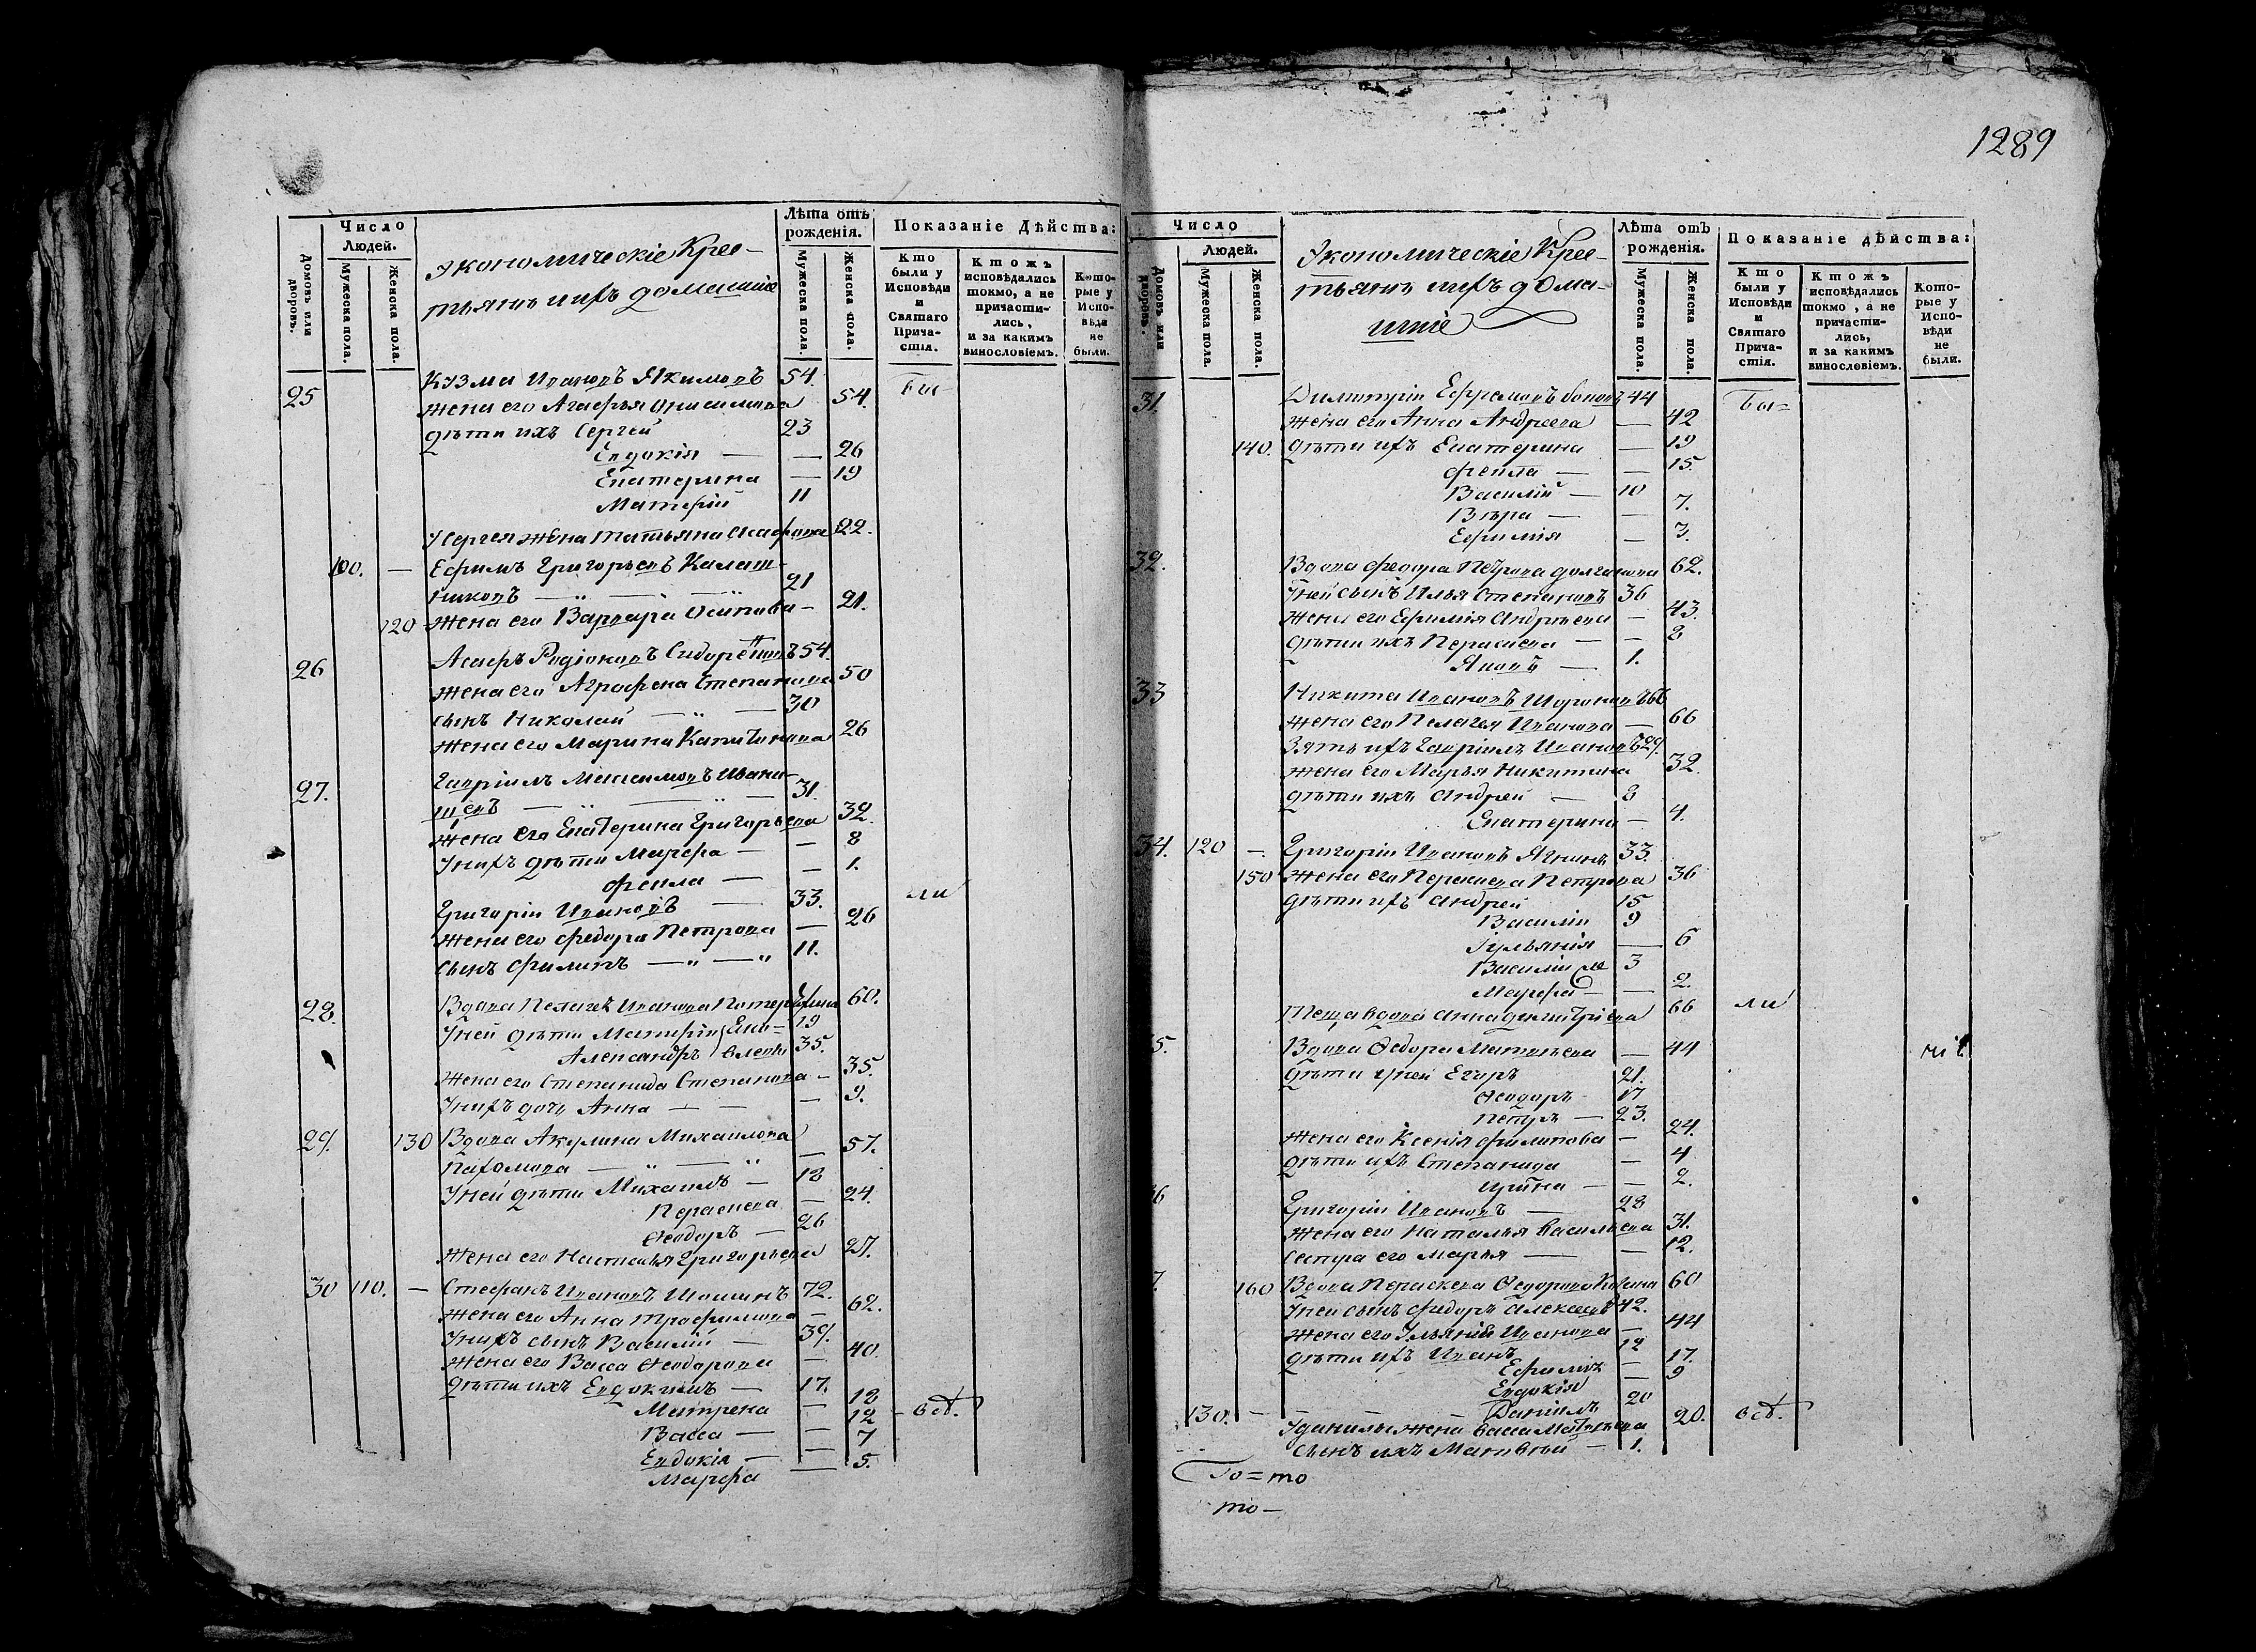 1289
Число
Людей.
Домовъ или дворовъ.
Мужеска пола.
Женска пола.
Экономическіе Крес-
тьянъ ихъ домашніе
Лѣта отъ рожденія.
Мужеска пола.
Женска пола.
Показаніе Дѣйства:
Кто были у Исповѣди и Святаго Прича-стія.
Ктожъ исповѣдались токмо, а не причасти-лись, и за какимъ винословіемъ.
Кото-рые у Испо-вѣди не были.
25 Кузма Ивановъ Якимовъ 54. Бы
жена его Агафья Онисимова 54.
дѣти ихъ Сергей 23
Евдокія — — 26
Екатерина — 19
Матфій 11
У Сергея жена Татьяна 22.
100. — Ефимъ Григорьевъ Калаш-
никовъ — 21
120 жена его Варвара Осипова — 21.
26 Родіоновъ 54.
жена его Аграфена Степанова 50
сынъ Николай — 30
жена его Марина 26
27. Гавріилъ Максимовъ Ивани-
щевъ — 31.
жена его Екатерина Григорьева 32.
У нихъ дѣти Марфа — — 8
Фекла — — 1.
Григорій Ивановъ — 33. ли
жена его Федора Петрова — 26
сынъ Филипъ — 11.
28. Вдова Пелагея Иванова 60.
У ней дѣти 19
Александръ 35.
жена его Степанида Степанова — 35.
У нихъ дочь Анна — — 9.
29. 130 Вдова Акулина Михаилова
Пахомова — — 57.
У ней дѣти Михаилъ — 18
Параскева — 24.
Ѳеодоръ — 26
жена его Настасья Григорьева 27.
30 110. — Стефанъ Ивановъ Шошинъ 72.
жена его Анна Трофимова — 62.
У нихъ сынъ Василій — 39.
жена его Васса Ѳеодорова — 40.
дѣти ихъ Евдокимъ — 17.
Матрена — 18 в сѣ.
Васса — — 12
Евдокія — — 7
Марфа — 5.
Число
Людей.
Домовъ или дворовъ.
Мужеска пола.
Женска пола.
Экономическіе Крес-
тьянъ ихъ дома-
шніе
Лѣта отъ рожденія.
Мужеска пола.
Женска пола.
Показаніе дѣйства:
Кто были у Исповѣди и Святаго Прича-стія.
Ктожъ исповѣдались токмо, а не причасти-лись, и за какимъ винословіемъ.
Кото-рые у Испо-вѣди не были.
31. Димитрій Ефремовъ 44 Бы=
жена его Анна Андреева — 42
140. дѣти ихъ Екатерина — 19
Фекла — — 15.
Василій — 10
Вѣра — — 7.
Ефимія — 3.
32. Вдова Федора Петрова Долганова 62.
У ней сынъ Илья Степановъ 36
жена его Ефимія Андреева — 43.
дѣти ихъ Параскева — — 8
Яковъ — 1.
33 Никита Ивановъ 66
жена его Пелагея Иванова — 66
Зять ихъ Гавріилъ Ивановъ 29.
жена его Марья Никитина 32.
дѣти ихъ Андрей — 8
Екатерина — 4.
34. 120 — Григорій Ивановъ 33.
150 жена его Параскева Петрова 36
дѣти ихъ Андрей 15
Василій 9
Іульянія — 6
Василій 3
Марфа — — 2.
Теща вдова Анна Димитріева 66 ли
5. Вдова Ѳедора Матвеева — 44
дѣти у ней Егоръ 21.
Ѳеодоръ 17
Петръ — 23.
жена его Ксенія Филипова — 24.
дѣти ихъ Степанида — 4
Ирина — — 2.
6 Григорій Ивановъ — 28
жена его Наталья Васильева 31.
Сестра его Марья — — 12.
7. 160 Вдова Параскева Ѳедорова 60
У ней сынъ Федоръ Алексеевъ 42.
жена его Ульянія Иванова — 44
дѣти ихъ Иванъ 12
Ефимія — 17.
Евдокія — 9
Даніилъ 20
130. — У Данилы жена Васса Матвеева 20. в сѣ.
сынъ ихъ Матвей — 1.
То=то
то—